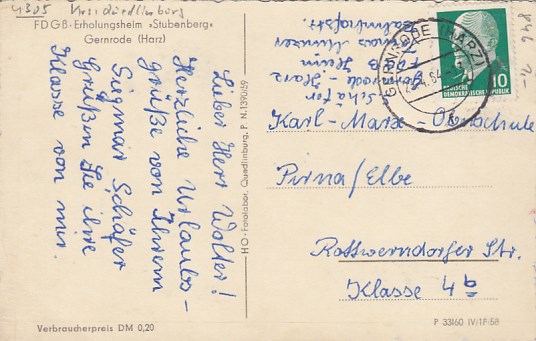 4305 Kreis Quedlinburg
FDGB-Erholungsheim »Stubenberg«
Gernrode (Harz)
Lieber Herr Walter!
Herzliche Urlaubs-
grüße von Ihrem
Siegmar Schäfer
Grüßen Sie ihre
Klasse von mir.
Verbraucherpreis DM 0,20
HO-Fotolabor, Quedlinburg, P. N. 1390/59
Schäfer
Gernrode-Harz
FDGB Heim
Thomas Münzer
Bahnhofstr.
GERNRODE (HARZ)
10
DEUTSCHE
DEMOKRATISCHE REPUBLIK
Karl-Marx-Oberschule
Pirna/Elbe
Rottwerndorfer Str.
Klasse 4a
P 33160 IV/1P-58